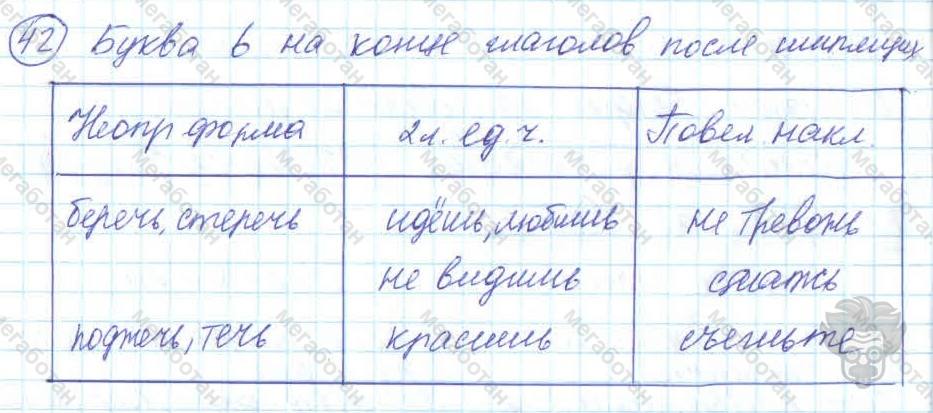 42 Буква ь на конце глаголов после шипящих
Неопр форма 2л. ед. ч. Повел. накл.
беречь, стеречь идёшь, любишь не тревожь
не видишь смажь
поджечь, течь красишь съешьте
Мегаботан